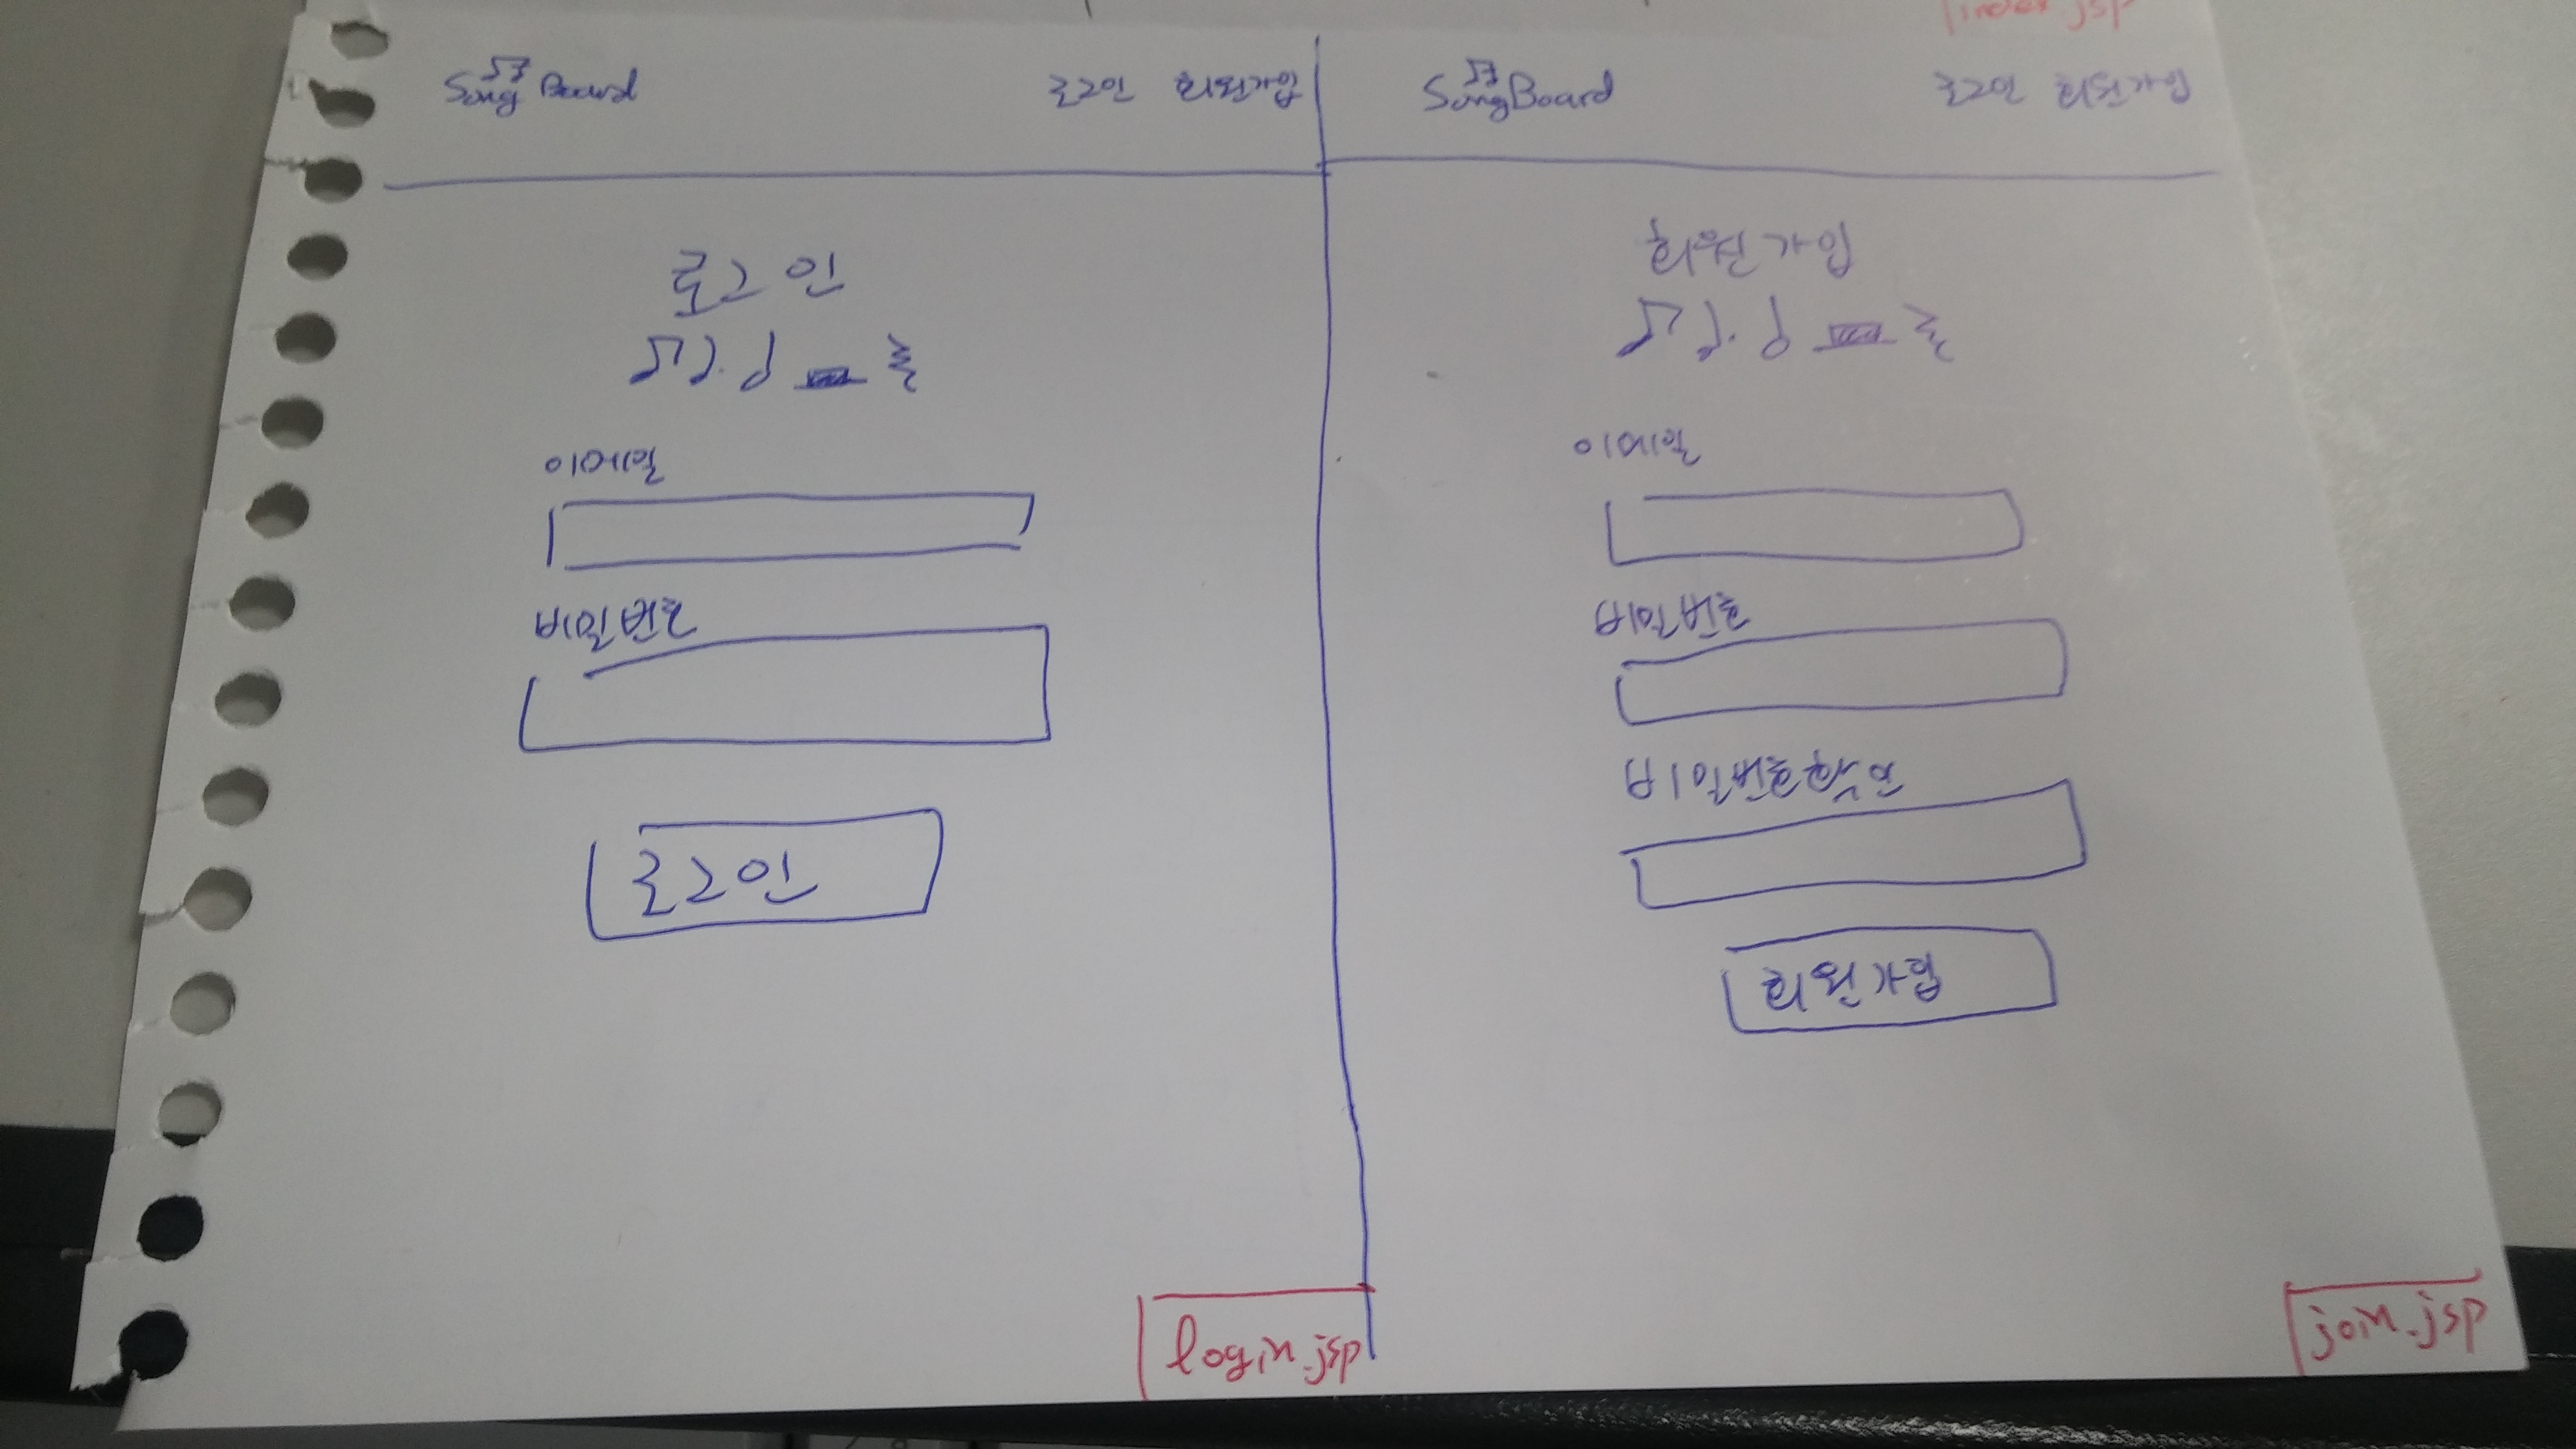 index.jsp
SongBoard 로그인 회원가입
로그인
이메일
비밀번호
로그인
login.jsp
SongBoard 로그인 회원가입
회원가입
이메일
비밀번호
비밀번호확인
회원가입
join.jsp